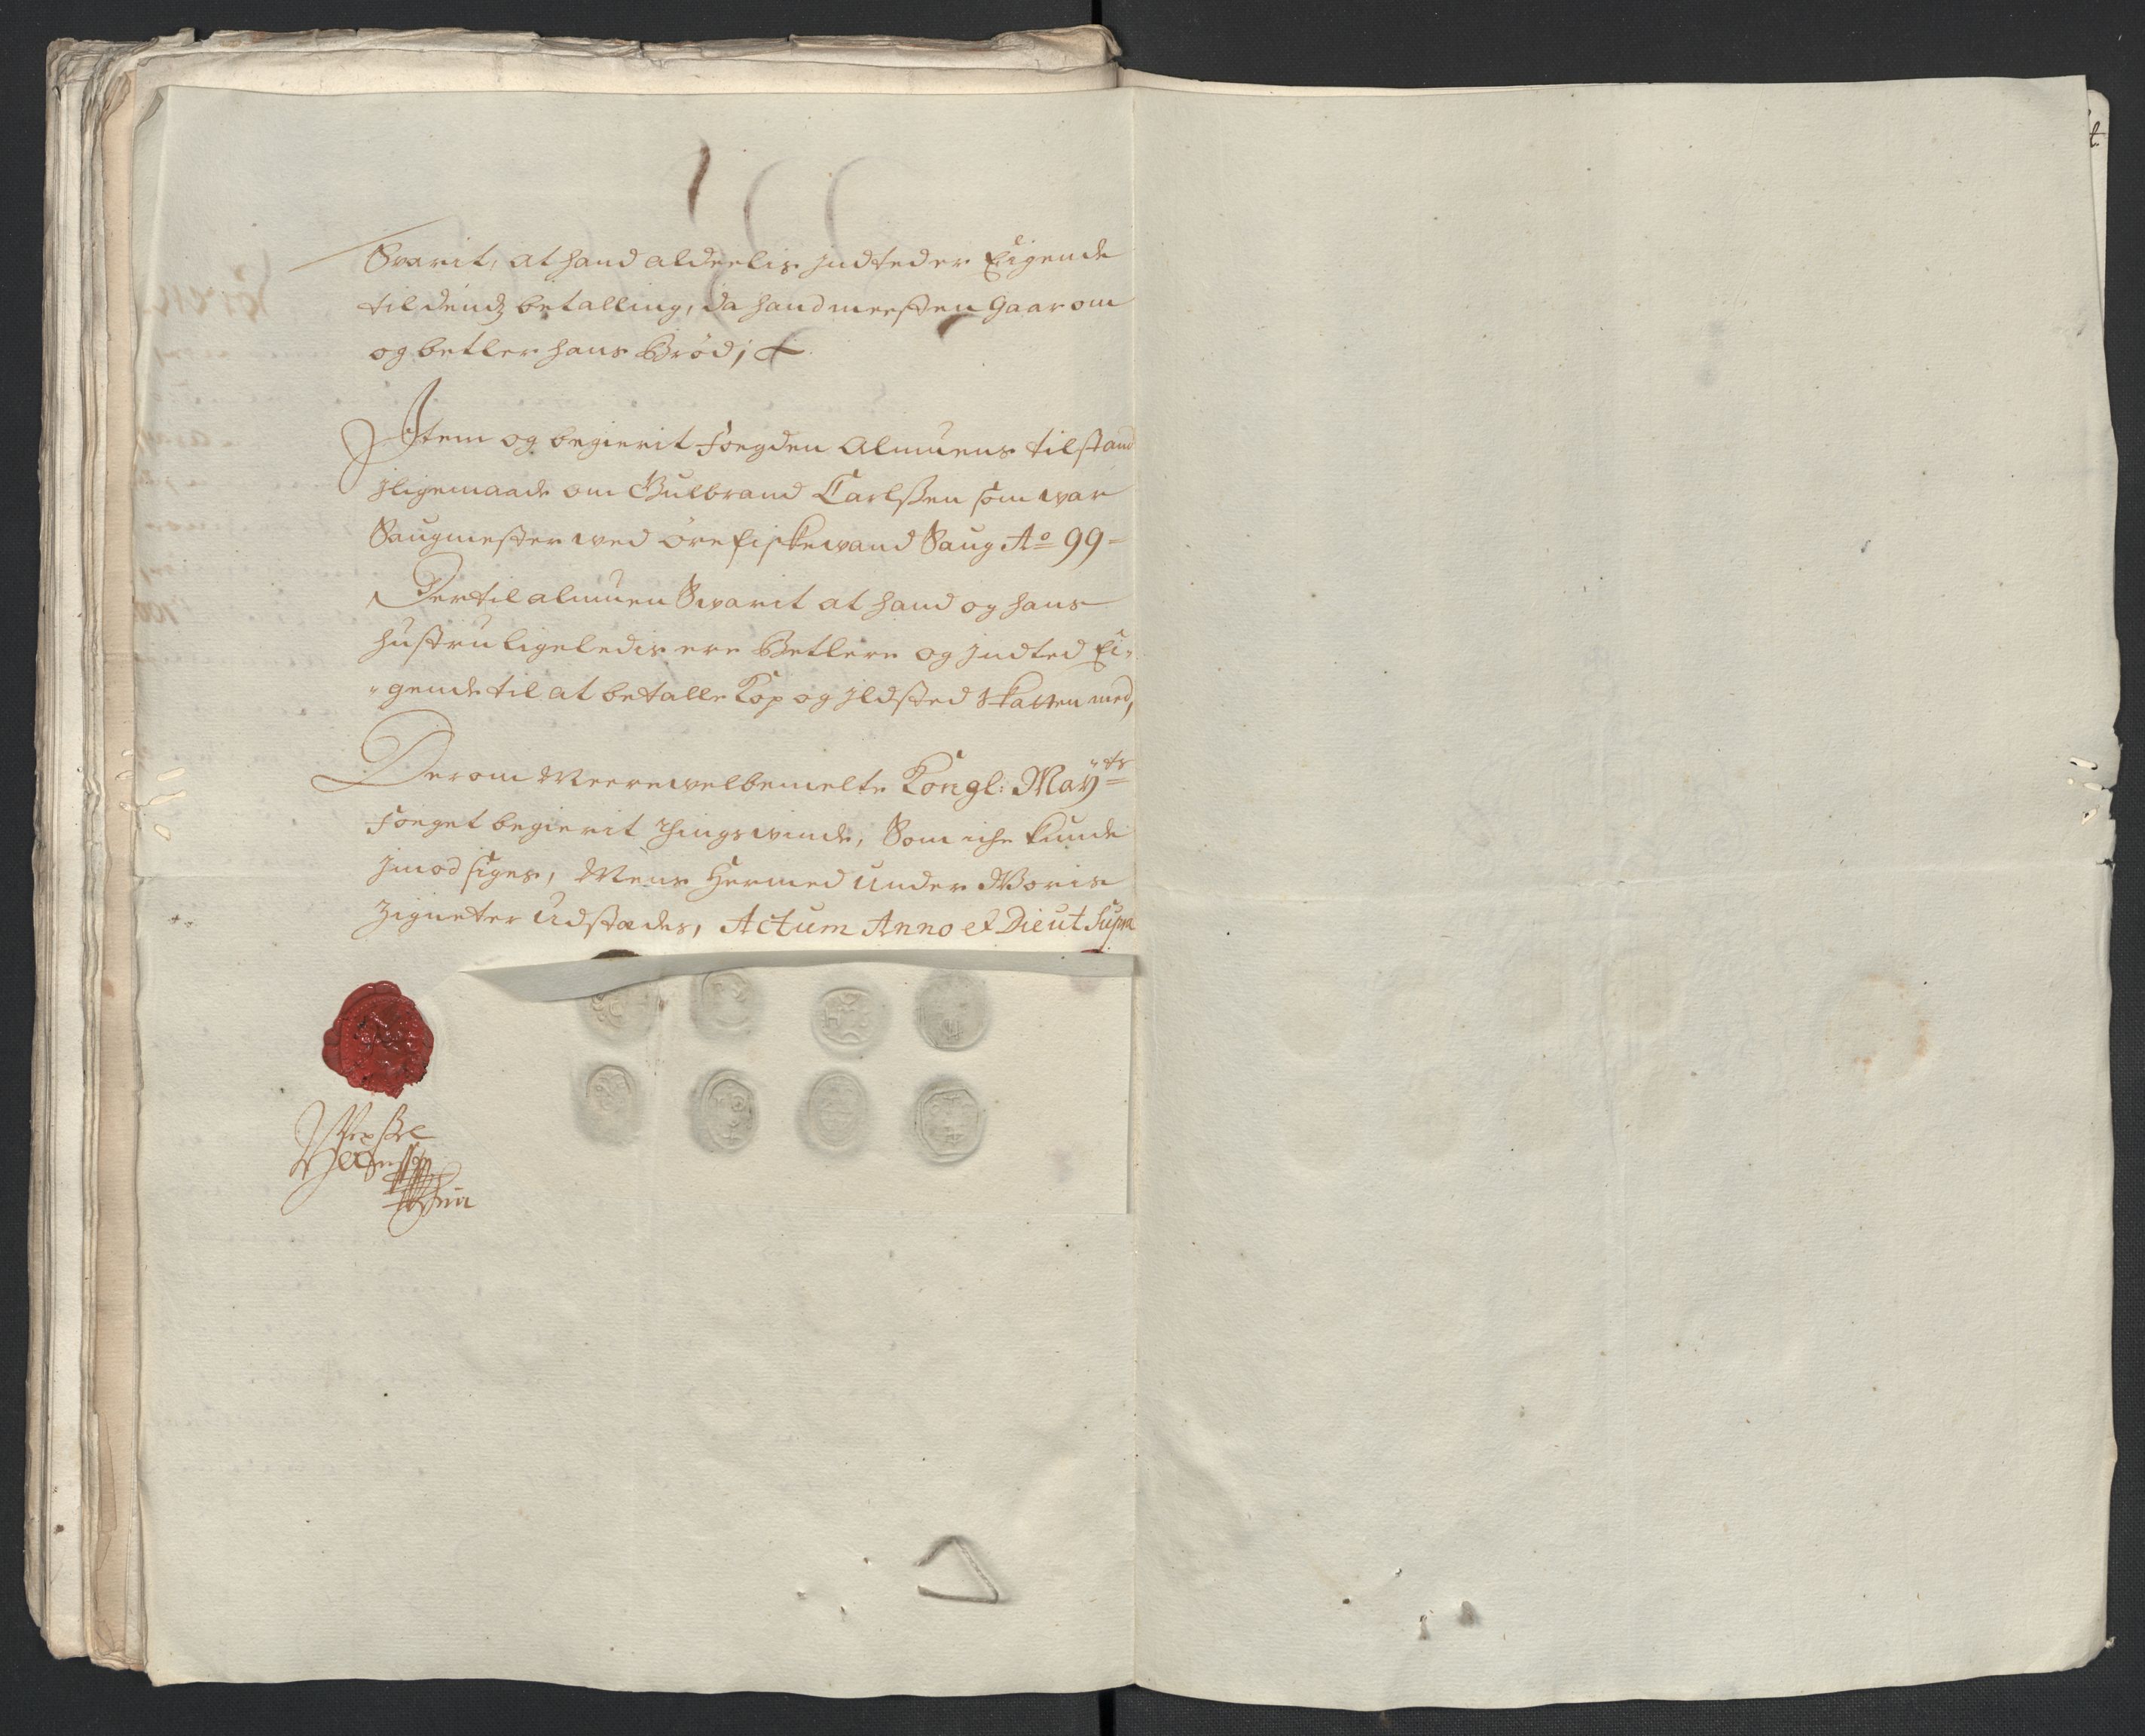 Svarit, at hand aldeelis indted er Eigende
til dends betalling, da hand meesten Gaar om
og betler hans Brød;
Item og begierit Fogden Almuens tilstand
jligemaade om Gulbrand Carlssen som war
Saugmester wed Øre fiskewand Saug Ao 99
Dertil almuen Swarit at hand og hans
hustru ligeledis ere Betlere og indted Ei-
gende til at betalle Kop og Ildsted skatten med,
Derom Meerewelbemelte Kongl: Mayts
Foeget begierit Thingswinde, Som iche kunde
imod siges, Mens Hermed Under Woris
Zigneter Udstædes, Actum Anno et Die ut Supra